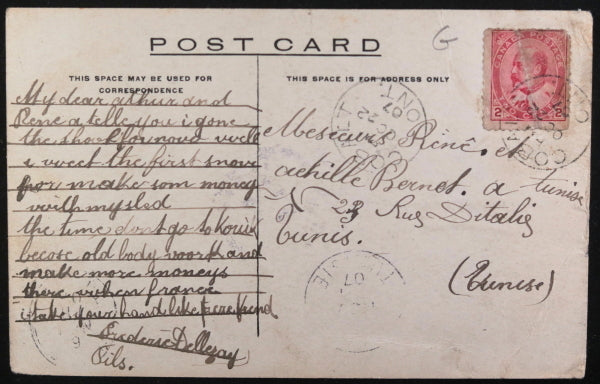 POST CARD
G
THIS SPACE MAY BE USED FOR
CORRESPONDENCE
THIS SPACE IS FOR ADDRESS ONLY
My dear arthur and
Rene a telle you i gone
the for nove
i the first snow
for make som money
with my sled
the time dont go to
becose old body voork and
make more moneys
there france
i take your hand like friend
Frederic
Fils.
Messieurs René. et
achille Bernet. a tunise
23 Rue Ditalie
Tunis.
(Tunise)
CANADA POSTAGE
2 2
COBALT
ONT
07
COBALT
ONT
07